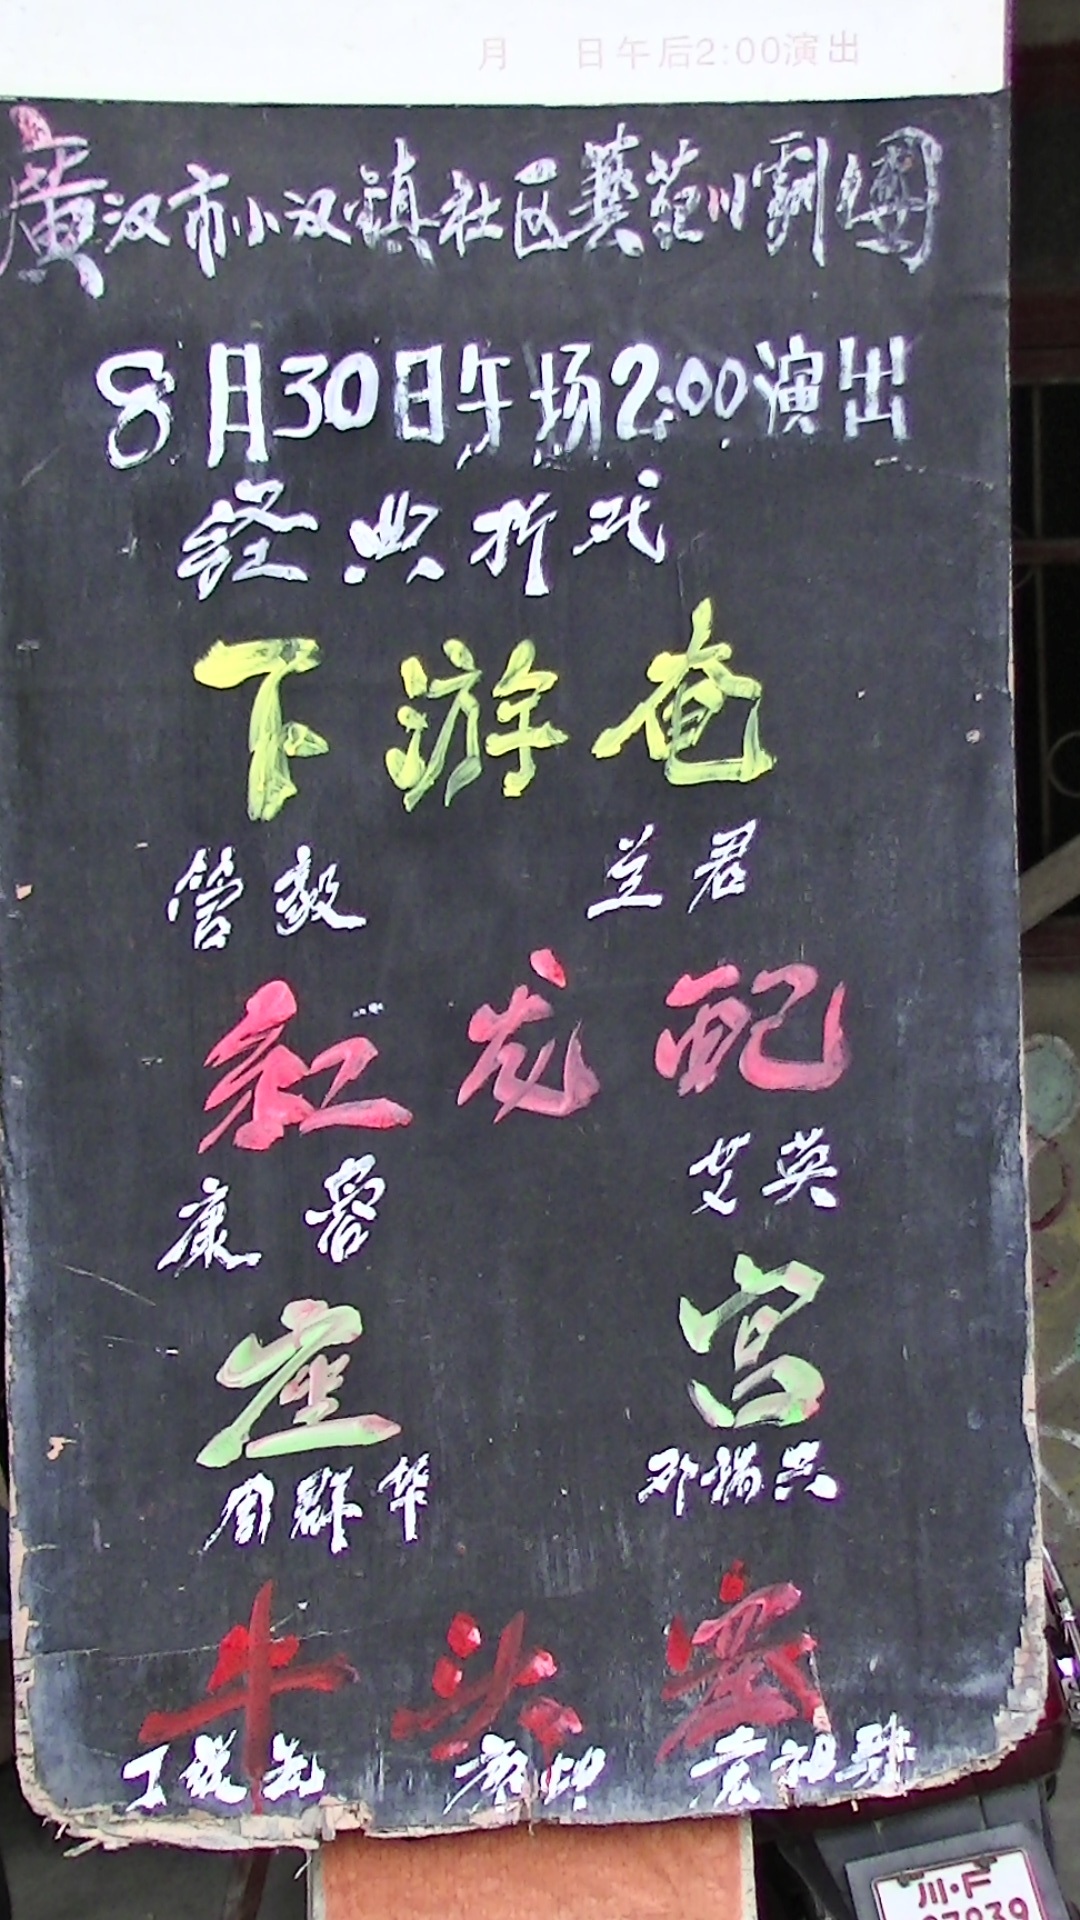 月 日午后2:00演出
廣汉市小汉鎮社区藝苑川劇團
8月30日午场2:00演出
经典折戏
下游庵
管毅 兰君
红龙配
康蓉 艾英
座宫
周群华 邓瑞兴
牛头寨
丁从先 廖印
川·F